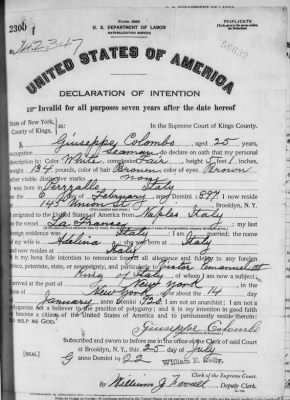 Form 2203
TRIPLICATE
U. S. DEPARTMENT OF LABOR
NATURALIZATION SERVICE
No. 142347
UNITED STATES OF AMERICA
DECLARATION OF INTENTION
Invalid for all purposes seven years after the date hereof
State of New York,
County of Kings, ss:
In the Supreme Court of Kings County.
I, Giuseppe Colombo aged 25 years,
occupation Seaman, do declare on oath that my personal
description is: Color White, complexion Fair, height 5 feet inches,
weight 134 pounds, color of hair Brown, color of eyes Brown
other visible distinctive marks none
I was born in Italy
on the 6 day of February, anno Domini 1897. I now reside
at 143 Union St, Brooklyn, N. Y.
I emigrated to the United States of America from Naples Italy
on the vessel
foreign residence was Italy; I am married; the name
of my wife is Adelina; she was born at Italy
and now resides at Italy
It is my bona fide intention to renounce forever all allegiance and fidelity to any foreign
prince, potentate, state, or sovereignty, and particularly to Victor Emanuel III
King of Italy, of whom I am now a subject;
I arrived at the port of New York, in the
State of New York, on or about the 14 day
of January, anno Domini 1921; I am not an anarchist; I am not a
polygamist nor a believer in the practice of polygamy; and it is my intention in good faith
to become a citizen of the United States of America and to permanently reside therein:
SO HELP ME GOD.
Giuseppe Colombo
Subscribed and sworn to before me in the office of the Clerk of said Court
at Brooklyn, N. Y., this 25 day of July
[SEAL]
anno Domini 1922
William E. Kelly,
Clerk of the Supreme Court.
By William J. Deputy Clerk.